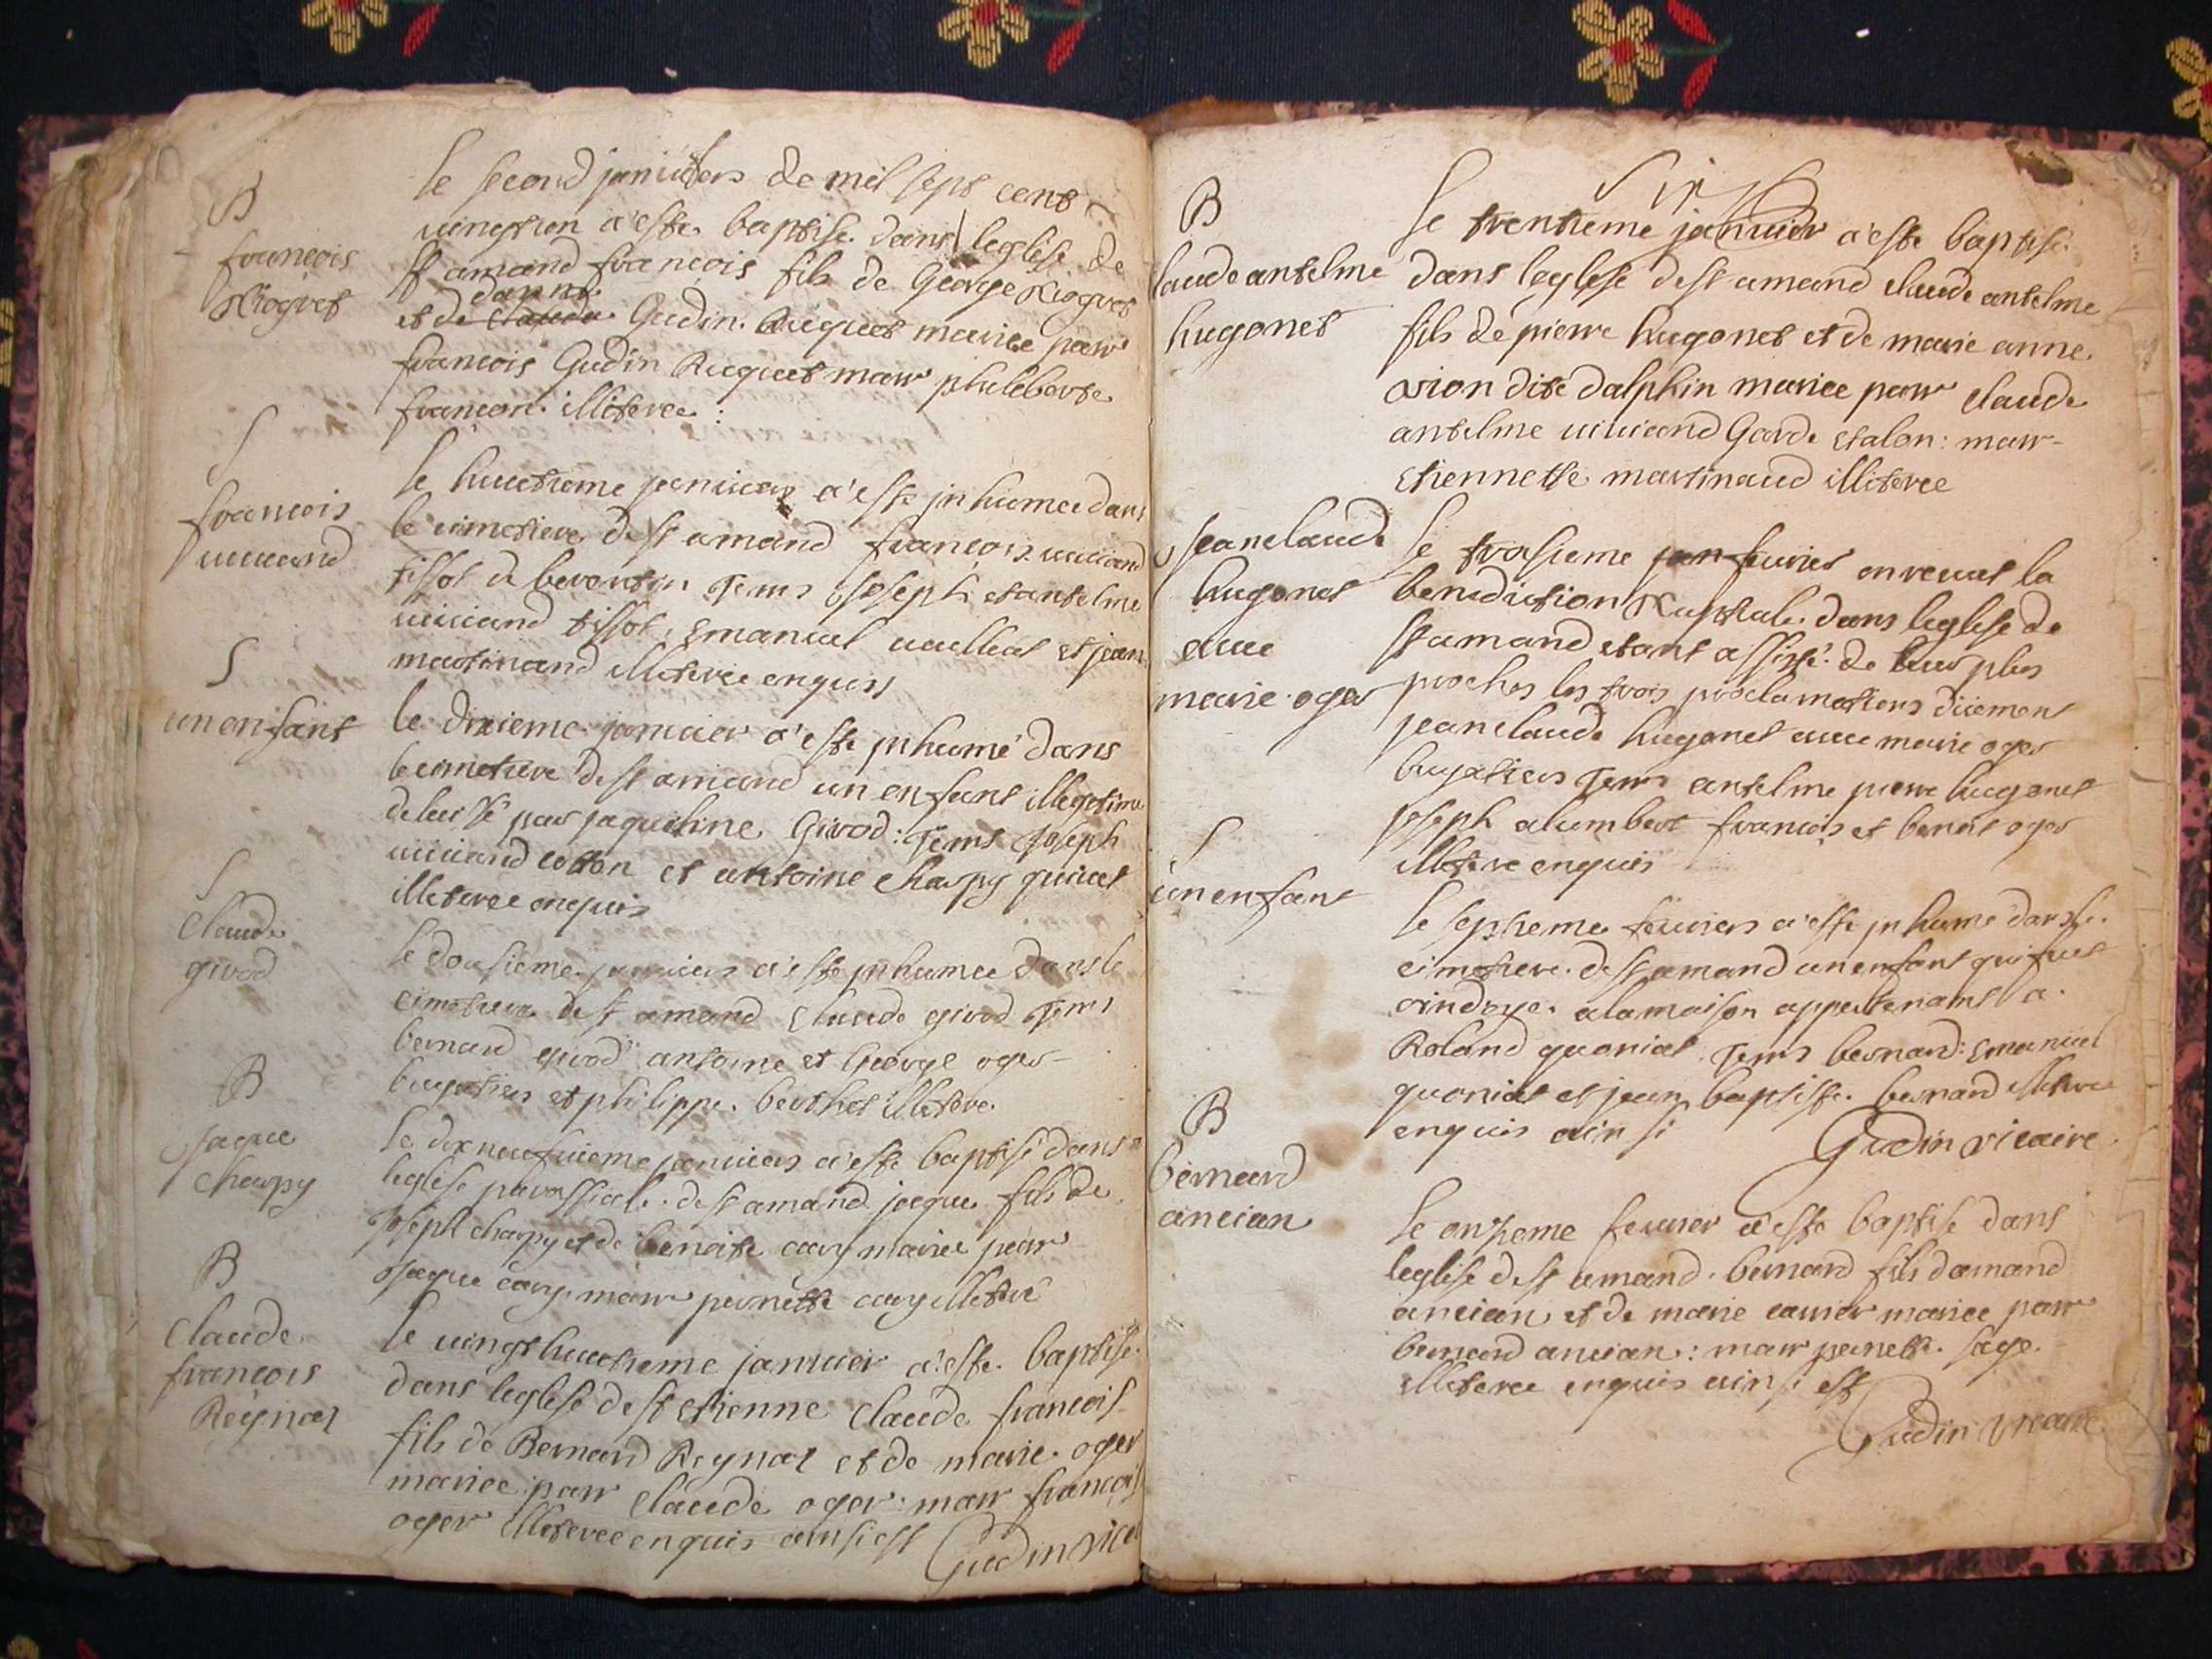 B
francois
Niogret
le second januiers de mil sept cent
uingt un a'este baptisé dans leglise de
st amand francois fils de George Niogret
danne
et de claudа Gudin Ruquet mariee parr
francois Gudin Ruquet marr philiberte
francon illiteree :
S
francois
uiuiand
le huictieme januier a'este inhumee dans
le cimetiere de st amand francois uiuiand
tissot de berentin Tems Joseph et antelme
uiuiand tissot, emanuel uuilliet et jean
martinand illiteree enquis
S
un enfant
le dixieme januier a'este inhumé dans
le cimetiere de st amand un enfant illegitime
delaissé par jaqueline Girod : Tems Joseph
uiuiand cotton et antoine charpy quinet
illiteree enquis
S
Claude
girod
le dousieme januiers a'este inhumee dans le
cimetiere de st amand Claude girod Tems
bernard girod antoine et George oger
bugatiers et philippe berthet illitere
B
Jaque
charpy
le dixneufuieme januiers a'este baptisé dans
leglise parossiale de st amand jaque fils de
Joseph charpy et de benoite cary mariee parr
Jaque cary marr pernette cary illiteré
B
Claude
francois
Reynar
le uingt huictieme januier a'este baptisé
dans leglise de st etienne Claude francois
fils de Bernard Reynar et de marie oger
mariee parr Claude oger : marr francois
oger illiteree enquis ainsi est Gudin vica
Six
B
laude antelme
hugonet
le trentieme januier a'este baptisé
dans leglise de st amand claude antelme
fils de pierre hugonet et de marie anne
vion dite dalphin mariee parr claude
antelme uiuiand Garde etalon : marr
etiennette martinaud illiteree
Jean claude
hugonet
auec
marie oger
le troisieme jan feurier on receut la
benediction Nuptiale dans leglise de
st amand etant assisté de leurs plus
proches les trois proclamations düement
jean claude hugonet auec marie oger
bugatiers Tems antelme pierre hugonet
joseph alumbert francois et benoit oger
illitere enquis
S
un enfant
le septieme feuriers a'este inhume dans le
cimetiere de st amand un enfant qui fut
oindoye a la maison appartenant a
Roland quoniat Tems bernard : emanuel
quoniat et jean baptiste bernard illiteree
enquis ainsi Gudin vicaire
B
bernard
ancian
le onzieme feurier a'este baptisé dans
leglise de st amand bernard fils damand
ancian et de marie carrier mariee parr
bernard ancian : marr pernette sage
illiteree enquis ainsi est
Gudin vicaire